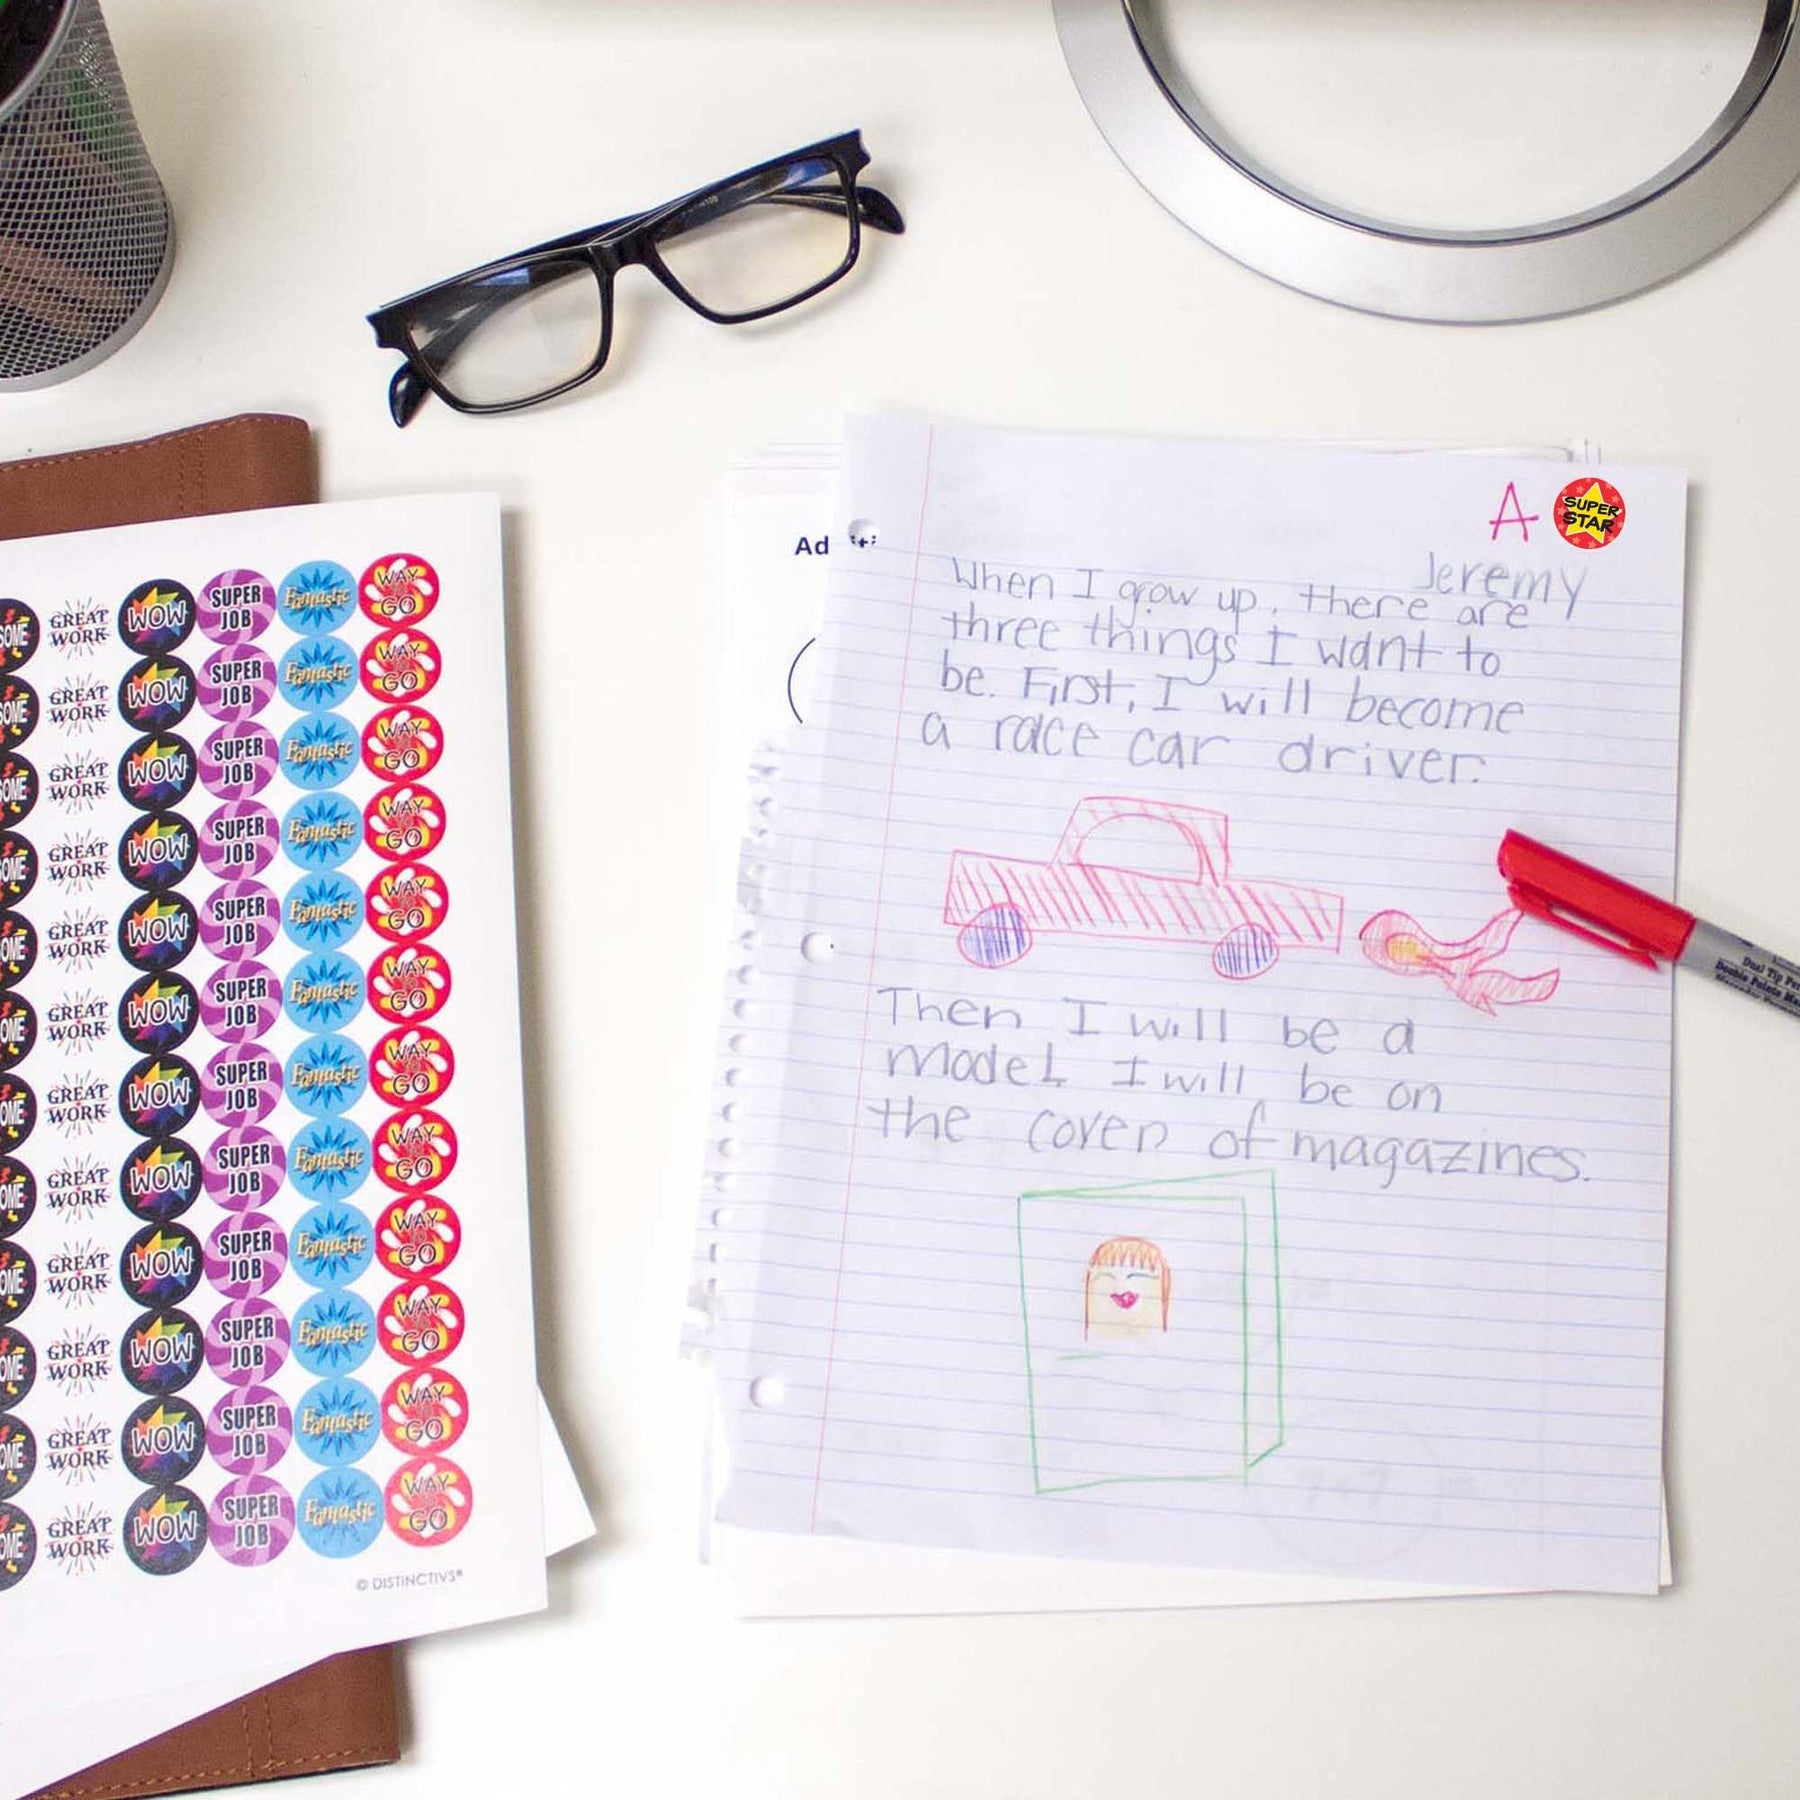 SOME GREAT WORK WOW SUPER JOB Fantastic WAY TO GO
SOME GREAT WORK WOW SUPER JOB Fantastic WAY TO GO
SOME GREAT WORK WOW SUPER JOB Fantastic WAY TO GO
SOME GREAT WORK WOW SUPER JOB Fantastic WAY TO GO
OME GREAT WORK WOW SUPER JOB Fantastic WAY TO GO
OME GREAT WORK WOW SUPER JOB Fantastic WAY TO GO
OME GREAT WORK WOW SUPER JOB Fantastic WAY TO GO
OME GREAT WORK WOW SUPER JOB Fantastic WAY TO GO
OME GREAT WORK WOW SUPER JOB Fantastic WAY TO GO
OME GREAT WORK WOW SUPER JOB Fantastic WAY TO GO
OME GREAT WORK WOW SUPER JOB Fantastic WAY TO GO
OME GREAT WORK WOW SUPER JOB Fantastic WAY TO GO
© DISTINCTIVS®
Ad
A
SUPER
STAR
Jeremy
When I grow up, there are
three things I want to
be. First, I will become
a race car driver.
Then I will be a
model. I will be on
the cover of magazines.
7+7
Dual Tip